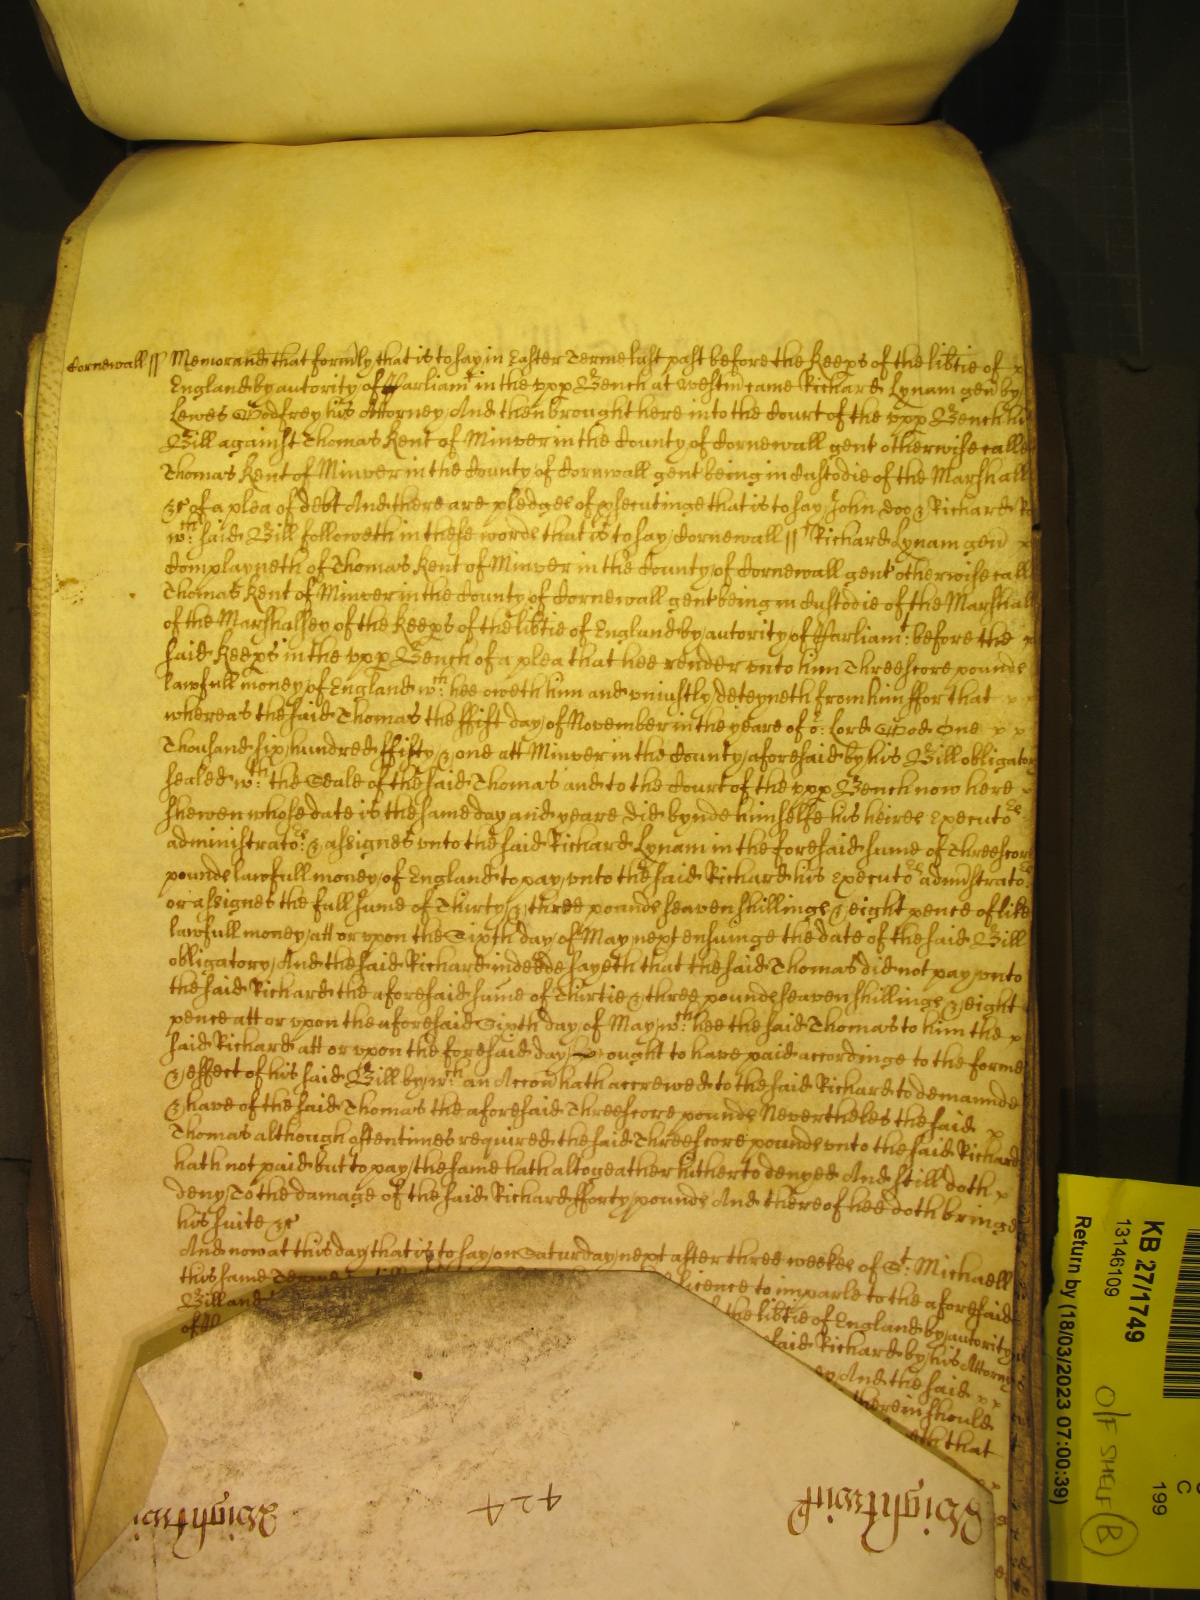 Cornewall ss Memorand that formly that is to say in Easter Terme last past before the Keeps of the libtie of
England by autority of Parliamt in the upp Bench at Westm came Richard Lynam gen by
Lewes Godfrey his Attorney And then brought here into the Court of the upp Bench his
Bill against Thomas Kent of Minver in the County of Cornewall gent otherwise called
Thomas Kent of Minver in the County of Cornwall gent being in Custodie of the Marshall
&c of a plea of debt And there are pledges of psecutinge that is to say John Doo & Richard Ro
wch said Bill followeth in these words that is to say Cornewall ss Richard Lynam gen
Complayneth of Thomas Kent of Minver in the County of Cornewall gent otherwise call
Thomas Kent of Minver in the County of Cornewall gent being in Custodie of the Marshall
of the Marshallsey of the Keeps of the libtie of England by autority of Parliamt before the
said Keeps in the upp Bench of a plea that hee render unto him Threescore pounds
lawfull money of England wch hee oweth him and uniustly deteyneth from him ffor that
whereas the said Thomas the ffift day of November in the yeare of or lord God One
Thousand six hundred ffifty & one att Minver in the County aforesaid by his Bill obligatory
sealed wth the Seale of the said Thomas and to the Court of the upp Bench now here
shewen whose date is the same day and yeare did bynde himselfe his heires executors
administrators & assignes unto the said Richard Lynam in the foresaid sume of Threescore
pounds lawfull money of England to pay unto the said Richard his executors administrators
or assignes the full sume of Thirty & three pounds seaven shillings & eight pence of like
lawfull money att or upon the Sixth day of May next ensuinge the date of the said Bill
obligatory And the said Richard in deede sayeth that the said Thomas did not pay unto
the said Richard the aforesaid sume of Thirtie & three pounds seaven shillings & eight
pence att or upon the aforesaid Sixth day of May wch hee the said Thomas to him the
said Richard att or upon the foresaid day ought to have paid accordinge to the forme
& effect of his said Bill by wch an Accon hath accrewed to the said Richard to demaunde
& have of the said Thomas the aforesaid Threescore pounds Nevertheles the said
Thomas although oftentimes required the said Threescore pounds unto the said Richard
hath not paid but to pay the same hath altogeather hitherto denyed And still doth
deny To the damage of the said Richard fforty pounds And thereof hee doth bringe
his suite &c
And now at this day that is to say on Saturday next after three weekes of St Michaell
this same Terme licence to imparle to the aforesaid
Bill and the libtie of England by autority
of th said Richard by his Attorny
And the said
therein should
that
Wightwick 424 Wightwick
KB 27/1749
13146109
Return by (18/03/2023 07:00:39)
C
199
O/F SHELF B